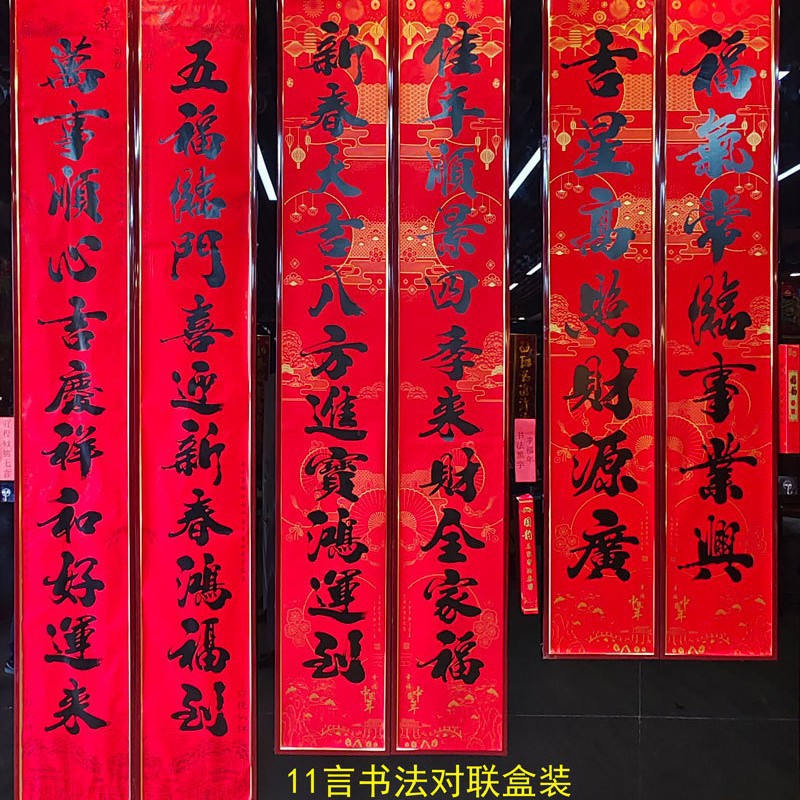 福氣常臨事業興
吉星高照財源廣
佳年順景四季来財全家福
新春大吉八方進寶鴻運到
五福臨門喜迎新春鴻福到
萬事順心吉慶祥和好運来
幸福年
书法黑字
11言书法对联盒装